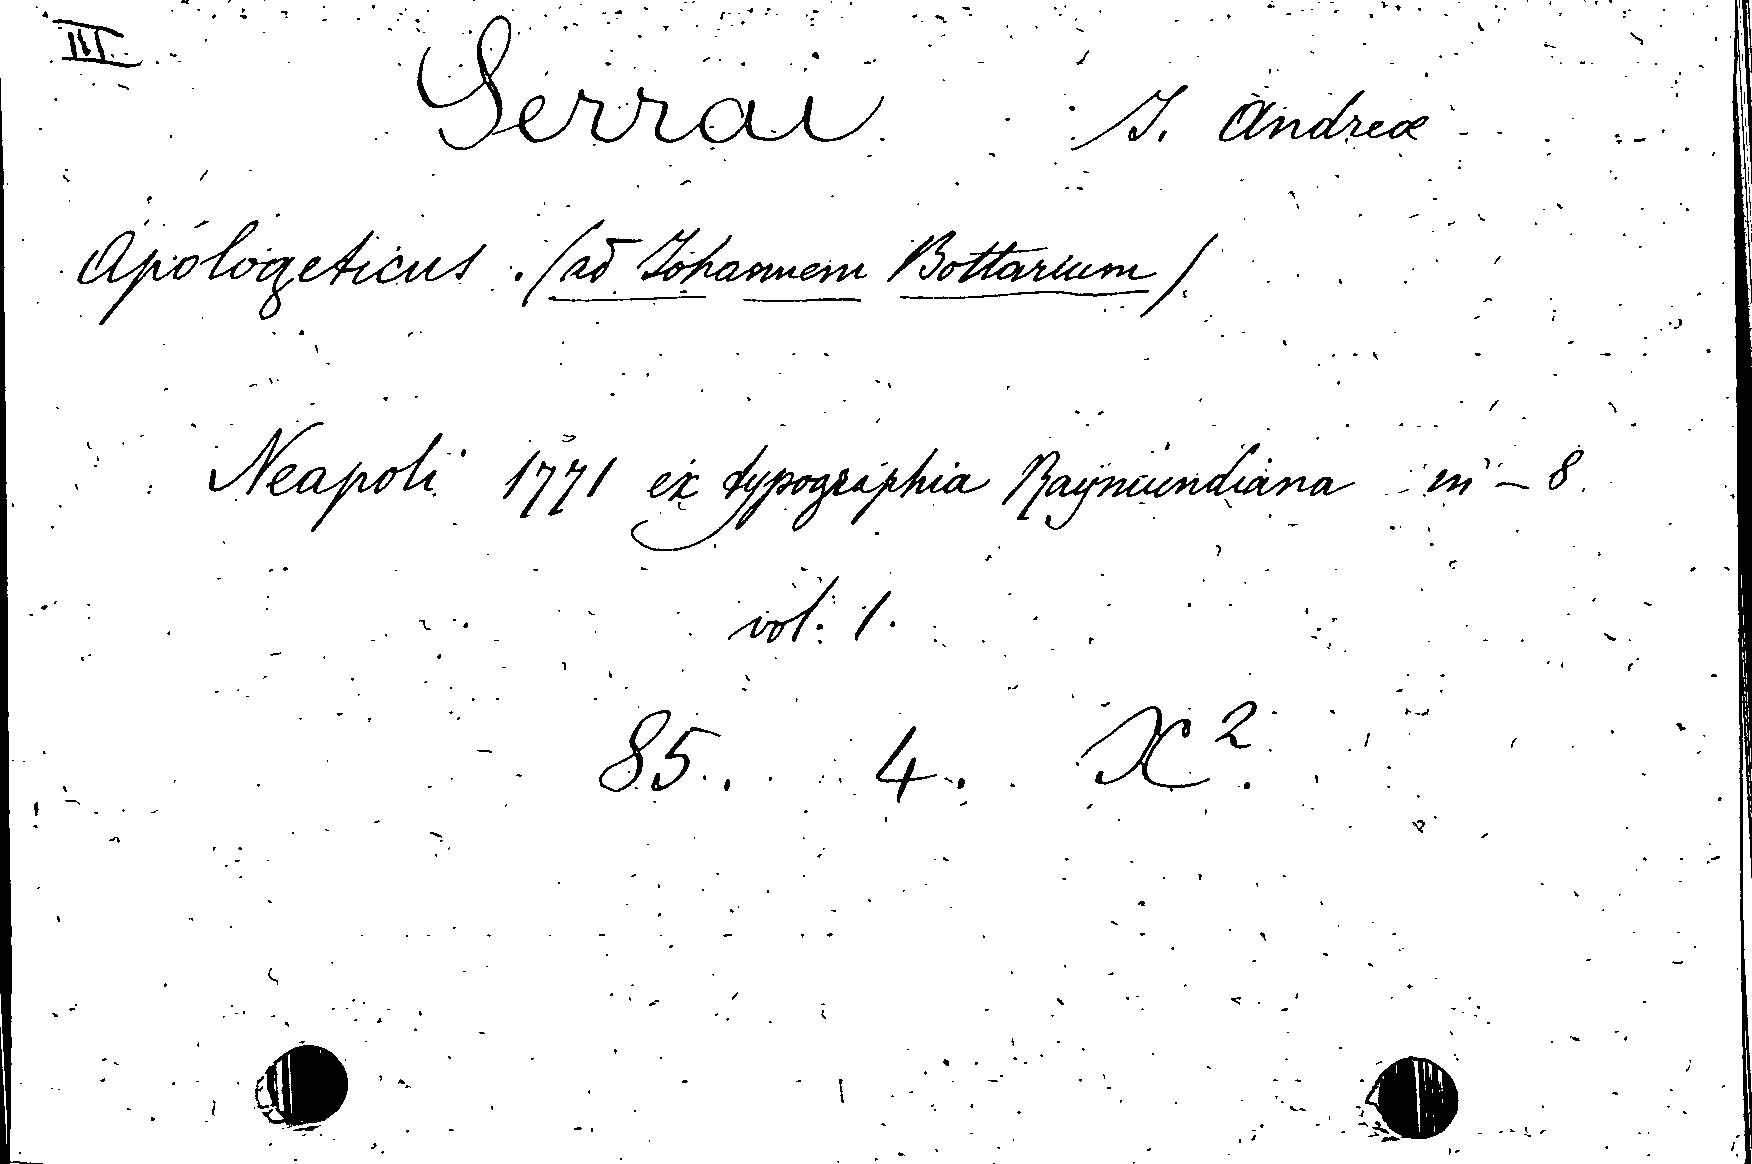 III
Serrai J. Andreæ
Apologeticus. (ad Johannem Bottarium)
Neapoli 1771 ex typographia Raymundiana in - 8
vol. 1.
85. 4. X².